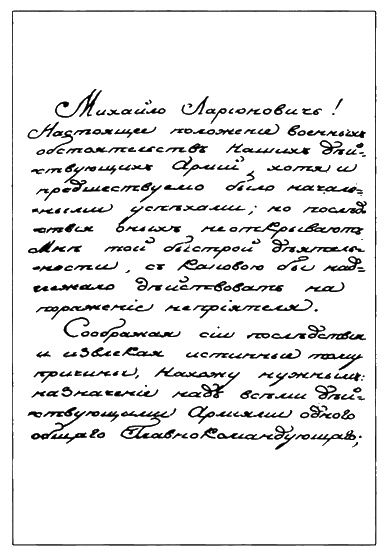 Михайло Ларіоновичь!
Настоящее положеніе военныхъ
обстоятельствъ нашихъ дѣй-
ствующихъ Армий, хотя и
предшествуемо было началь-
ными успѣхами; но послѣд-
ствія оныхъ неоткрываютъ
Мнѣ той быстрой дѣятель-
ности, съ каковою бы над-
лежало дѣйствовать на
пораженіе непріятеля.
Соображая сіи послѣдствія
и извлекая истинные тому
причины, нахожу нужнымъ:
назначеніе надъ всѣми дѣй-
ствующими Арміями одного
общаго Главнокомандующаго;